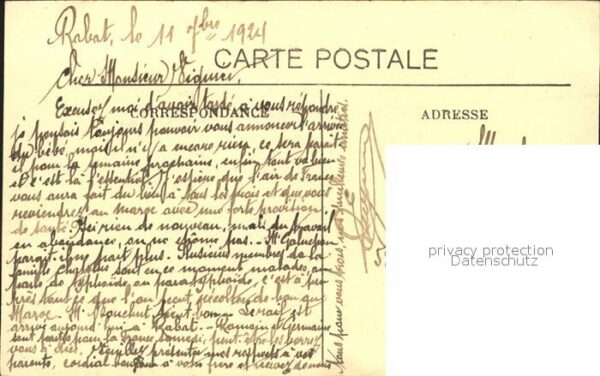 Rabat, le 11 7bre 1924
CARTE POSTALE
Cher Monsieur
CORRESPONDANCE
ADRESSE
Excusez moi d'avoir tardé a vous répondre
je pensais toujours pouvoir vous annoncer l'arrivée
du bébé, mais il n'y a encore rien, ce sera parait
il pour la semaine prochaine, enfin tout va bien
et c'est là l'essentiel. J'espère que l'air de France
vous aura fait du bien à tous les trois et que vous
reviendrez au maroc avec une forte provision
de santé. Ici rien de nouveau, mais du travail
en abondance, on ne chôme pas. - Mr
parait-il ne part plus. - Plusieurs membres de la
famille sont en ce moment malades, au
de typhoïde ou paratyphoïde, c'est à peu
près tout ce que l'on peut récolter de bon au
Maroc. - Mr vient bon - est
arrivé aujourd'hui à Rabat. - Romain et Germaine
sont partis pour la France samedi, peut-être les verrez
vous à . Veuillez présenter mes respects à vos
parents, cordial bonjour à votre frère et recevez de nous
tous pour vous trois, nos meilleures amitiés.
privacy protection
Datenschutz